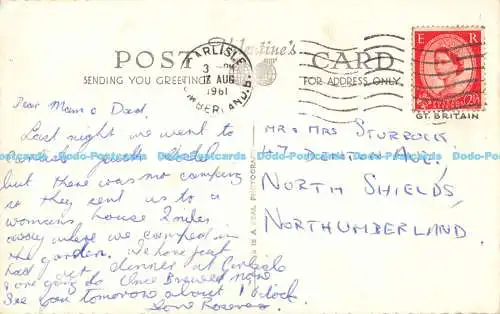 POST Valentine's CARD
SENDING YOU GREETINGS FOR ADDRESS ONLY
CARLISLE
3 - PM
17 AUG
1961
CUMBERLAND
E R
2½D
GT. BRITAIN
Dear Mum & Dad.
Last night we went to
but there was no camping
so they sent us to a
womans house 2 miles
away where we camped in
the garden. We have just
had dinner at Carlisle
are going to Once Brewed now
See you tomorrow about 1 o'clock.
Love
THIS IS A REAL PHOTOGRAPH
MR & MRS STURROCK
47 DENTON AVE,
NORTH SHIELDS
NORTHUMBERLAND.
Dodo-Postcards Dodo-Postcards Dodo-Postcards Dodo-Postcards Dodo-Postcards Dodo-Postcards